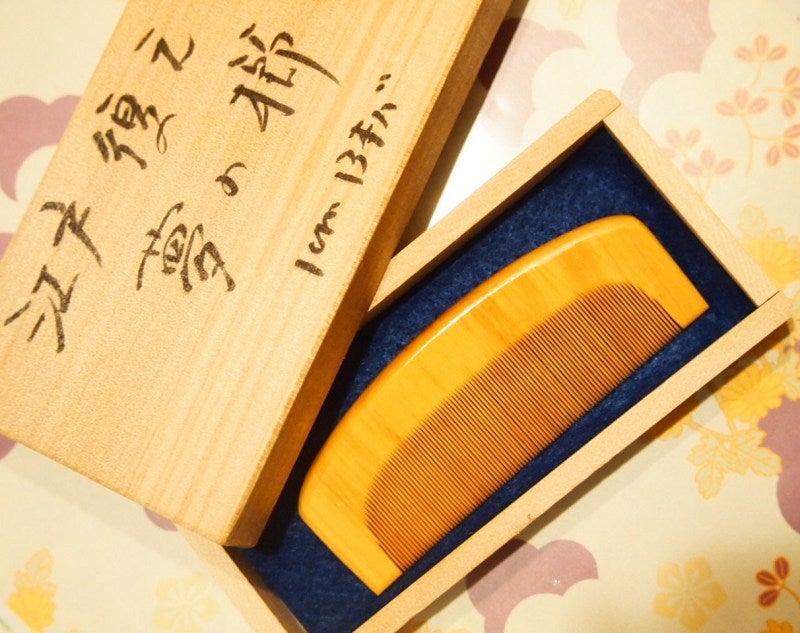 江戸復元
夢の櫛
1cm 13本バ